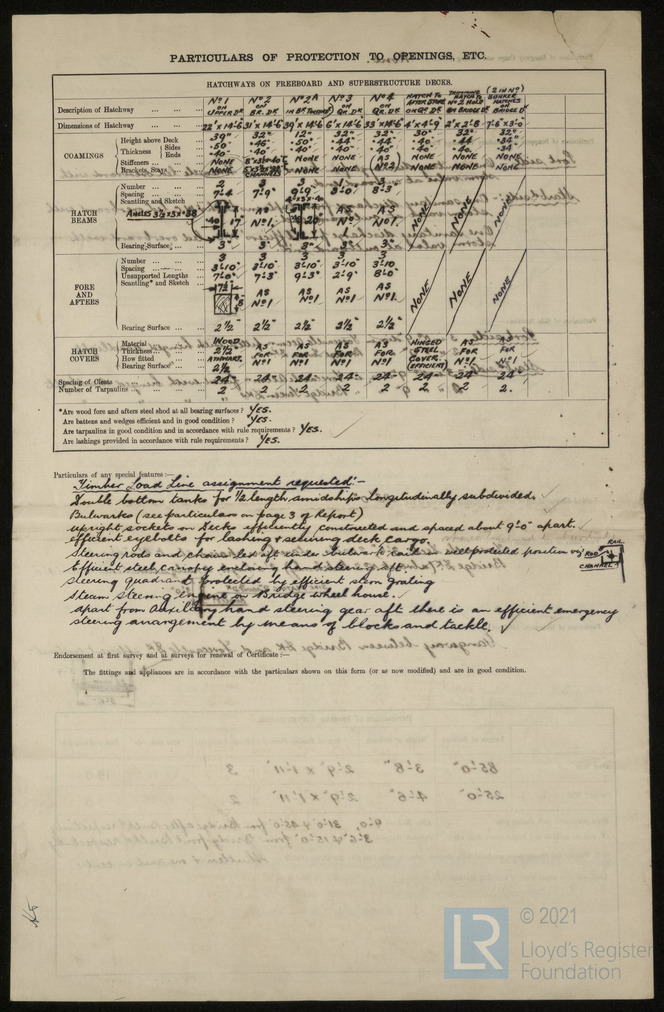 PARTICULARS OF PROTECTION TO OPENINGS, ETC.
HATCHWAYS ON FREEBOARD AND SUPERSTRUCTURE DECKS.
Description of Hatchway No 1 ON UPPER DK No 2 ON BR. DK No 2A No 3 ON QR DK No 4 ON QR. DK HATCH TO AFTER STORE ON QR DK TRIMMING HATCH TO No 2 HOLD ON BRIDGE DK (2 IN No) BUNKER HATCHES ON BRIDGE DK
Dimensions of Hatchway 22' x 14'-6 31' x 14'-6 39' x 14'-6 6' x 14'-6 33' x 14'-6 4' x 4'-9" 2' x 2'-8 7'-6 x 3'-0"
COAMINGS
Height above Deck 39" 32" 12" 32" 32" 30" 32" 32"
Thickness Sides .50 .46 .50 .44 .44 .40 .44 .34
Ends .40 .40 .40 .40 .40 .40 .40 .34
Stiffeners NONE NONE NONE
Brackets, Stays NONE NONE NONE (AS No 2) NONE NONE NONE
HATCH BEAMS
Number 2 3 3 1 3
Spacing 7'-4 7'-9" 9'-9" 8'-0 8'-3
Scantling and Sketch
ANGLES 3½ x 3 x .38 .40 17" AS No 1. 20 AS No 1. AS No 1. NONE NONE NONE
Bearing Surface 3" 3" 3" 3" 3"
FORE AND AFTERS
Number 3 3 3 3 3
Spacing 3'-10" 3'-10" 3'-10" 3'-10" 3'-10
Unsupported Lengths 7'-0" 7'-3" 9'-3" 2'-9" 8'-0
Scantling* and Sketch 7½ AS No 1 AS No 1 AS No 1 AS No 1. NONE NONE NONE
Bearing Surface 2½ 2½" 2½" 2½" 2½"
HATCH COVERS
Material WOOD AS FOR No 1 AS FOR No 1 AS FOR No 1 AS FOR No 1 HINGED STEEL COVER (EFFICIENT) AS FOR No 1 AS FOR No 1
Thickness 2½
How fitted ATHWART.
Bearing Surface 2½
Spacing of Cleats 24" 24" 24" 24" 24" 24" 24" 24"
Number of Tarpaulins 2 2 2 2 2 2 2 2.
*Are wood fore and afters steel shod at all bearing surfaces? YES.
Are battens and wedges efficient and in good condition? YES.
Are tarpaulins in good condition and in accordance with rule requirements? YES.
Are lashings provided in accordance with rule requirements? YES.
Particulars of any special features:—
Timber Load Line assignment requested:-
Double bottom tanks for ½ length amidships longitudinally subdivided.
Bulwarks (see particulars on page 3 of Report)
upright sockets on Decks efficiently constructed and spaced about 9'-0" apart.
efficient eyebolts for lashing & securing deck cargo.
Steering rods and chains led aft under bulwark rail in well protected position viz
RAIL
ROD
CHANNEL
Efficient steel canopy enclosing hand steering aft.
Steering quadrant protected by efficient strong grating
Steam Steering Engine on Bridge wheel house.
apart from Auxiliary hand steering gear aft there is an efficient emergency
steering arrangement by means of blocks and tackle.
Endorsement at first survey and at surveys for renewal of Certificate:—
The fittings and appliances are in accordance with the particulars shown on this form (or as now modified) and are in good condition.
LR
© 2021
Lloyd's Register
Foundation